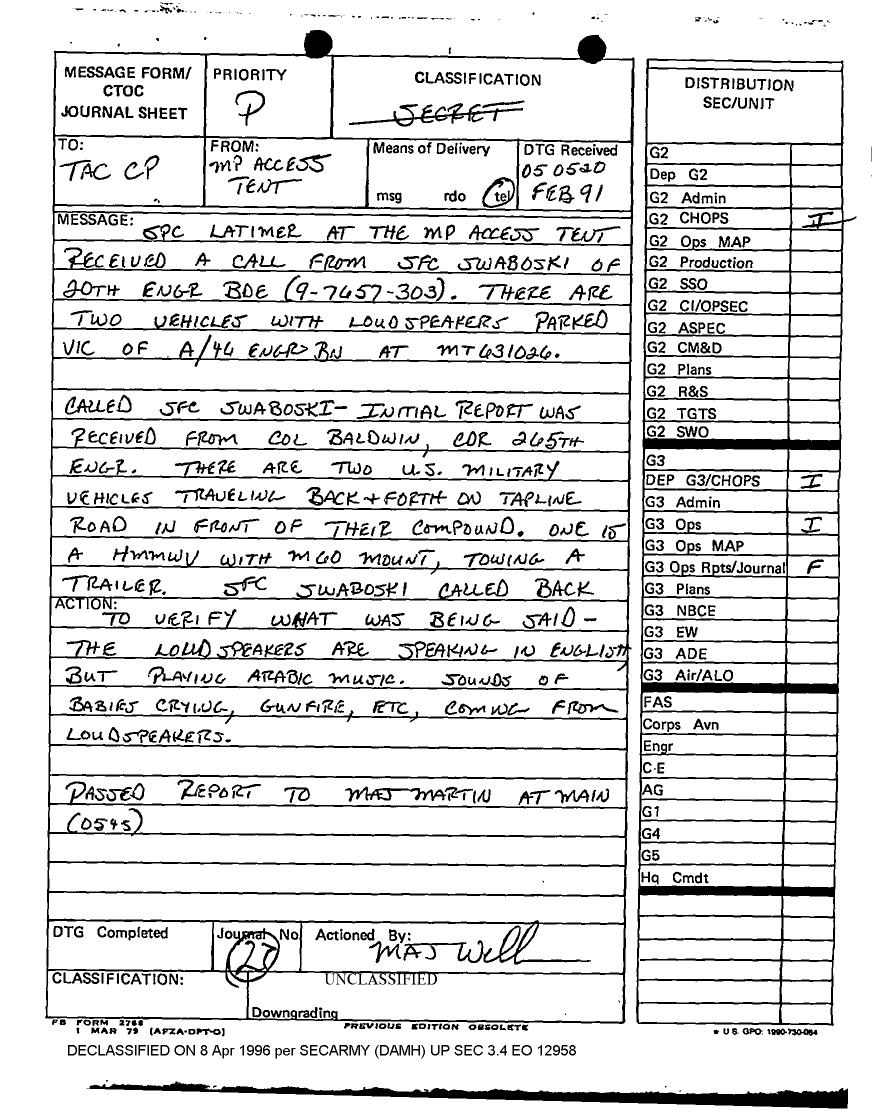 MESSAGE FORM/ CTOC JOURNAL SHEET
PRIORITY
P
CLASSIFICATION
SECRET
TO:
TAC CP
FROM:
MP ACCESS TENT
Means of Delivery
msg rdo tel
DTG Received
05 0520
FEB 91
MESSAGE:
SPC LATIMER AT THE MP ACCESS TENT
RECEIVED A CALL FROM SFC SWABOSKI OF
20TH ENGR BDE (9-7657-303). THERE ARE
TWO VEHICLES WITH LOUDSPEAKERS PARKED
VIC OF A/46 ENGR BN AT MT631026.
CALLED SFC SWABOSKI- INITIAL REPORT WAS
RECEIVED FROM COL BALDWIN, CDR 265TH
ENGR. THERE ARE TWO U.S. MILITARY
VEHICLES TRAVELING BACK + FORTH ON TAPLINE
ROAD IN FRONT OF THEIR COMPOUND. ONE IS
A HMMWV WITH M60 MOUNT, TOWING A
TRAILER. SFC SWABOSKI CALLED BACK
ACTION:
TO VERIFY WHAT WAS BEING SAID -
THE LOUDSPEAKERS ARE SPEAKING IN ENGLISH,
BUT PLAYING ARABIC MUSIC. SOUNDS OF
BABIES CRYING, GUNFIRE, ETC, COMING FROM
LOUDSPEAKERS.
PASSED REPORT TO MAJ MARTIN AT MAIN
(0545)
DTG Completed
Journal No
27
Actioned By:
MAJ Well
CLASSIFICATION:
UNCLASSIFIED
Downgrading
FB FORM 2768
1 MAR 79 (AFZA-DPT-O)
PREVIOUS EDITION OBSOLETE
DISTRIBUTION
SEC/UNIT
G2
Dep G2
G2 Admin
G2 CHOPS I
G2 Ops MAP
G2 Production
G2 SSO
G2 CI/OPSEC
G2 ASPEC
G2 CM&D
G2 Plans
G2 R&S
G2 TGTS
G2 SWO
G3
DEP G3/CHOPS I
G3 Admin
G3 Ops I
G3 Ops MAP
G3 Ops Rpts/Journal F
G3 Plans
G3 NBCE
G3 EW
G3 ADE
G3 Air/ALO
FAS
Corps Avn
Engr
C-E
AG
G1
G4
G5
Hq Cmdt
★ U.S. GPO: 1990-730-084
DECLASSIFIED ON 8 Apr 1996 per SECARMY (DAMH) UP SEC 3.4 EO 12958